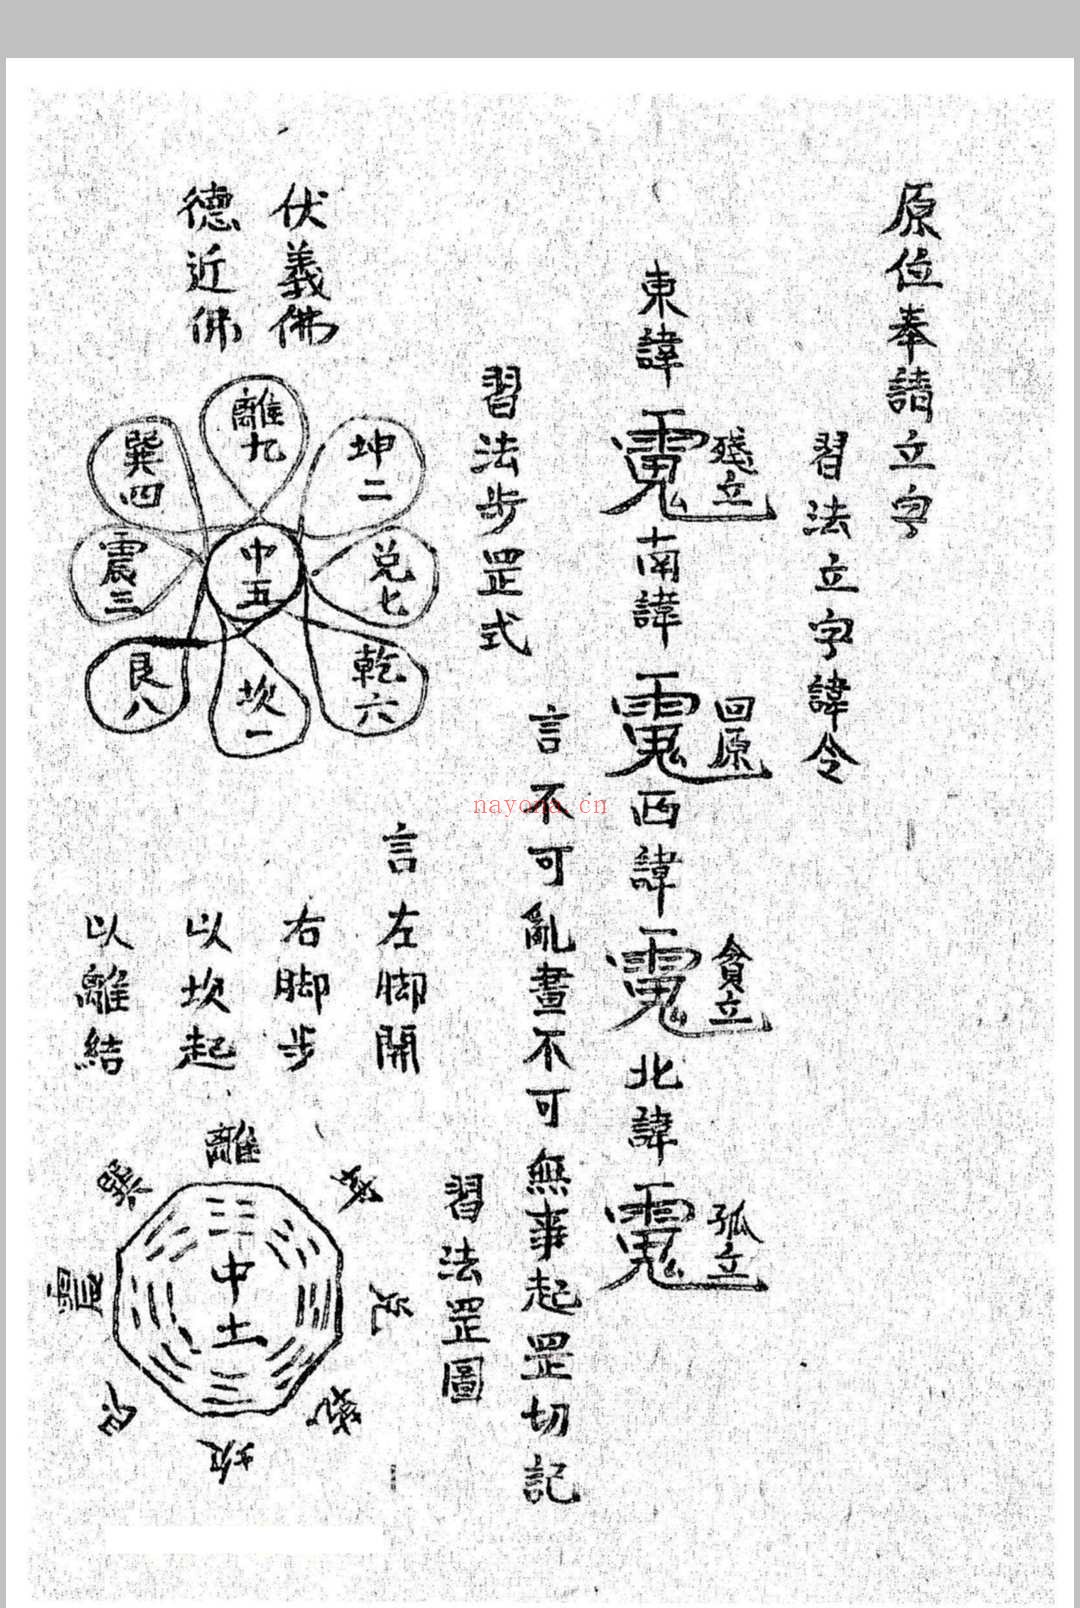 原位奉請立字
習法立字諱令
東諱 殘立 南諱 回原 西諱 貪立 北諱 孤立
言不可亂畫不可無事起罡切記
習法步罡式
習法罡圖
言左脚開
右脚步
以坎起
以離結
伏義佛
德近佛
離九
坤二
巽四
中五
兑七
震三
乾六
坎一
艮八
離
巽
坤
震
兑
艮
乾
坎
中土
nayona.cn